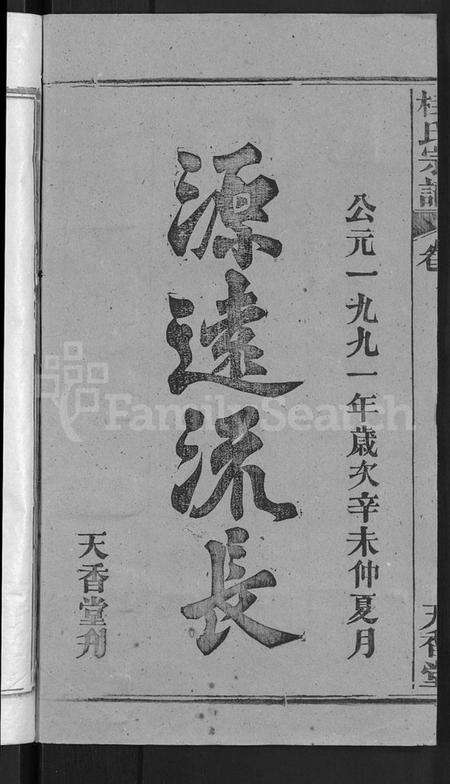 桂氏宗譜
卷
天香堂
公元一九九一年歲次辛未仲夏月
源遠流長
天香堂刊
FamilySearch